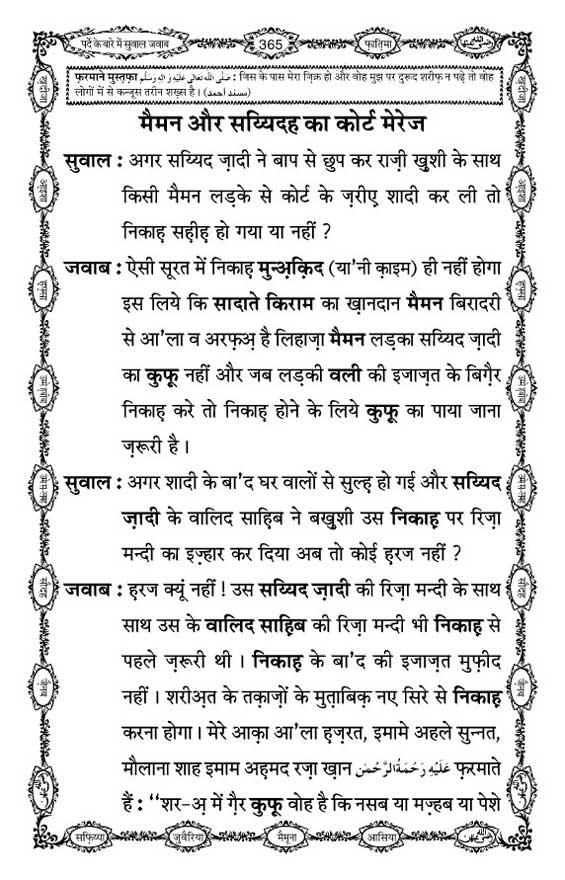 पर्दे के बारे में सुवाल जवाब
365
फ़ातिमा
फ़रमाने मुस्तफ़ा صَلَّى اللهُ تَعَالٰى عَلَيْهِ وَاٰلِهٖ وَسَلَّم : जिस के पास मेरा ज़िक्र हो और वोह मुझ पर दुरूद शरीफ़ न पढ़े तो वोह
लोगों में से कन्जूस तरीन शख़्स है । (مسند احمد)
मैमन और सय्यिदह का कोर्ट मेरेज
सुवाल : अगर सय्यिद ज़ादी ने बाप से छुप कर राज़ी ख़ुशी के साथ
किसी मैमन लड़के से कोर्ट के ज़रीए शादी कर ली तो
निकाह सह़ीह़ हो गया या नहीं ?
जवाब : ऐसी सूरत में निकाह़ मुन्अ़क़िद (या'नी क़ाइम) ही नहीं होगा
इस लिये कि सादाते किराम का ख़ानदान मैमन बिरादरी
से आ'ला व अरफ़अ़ है लिहाज़ा मैमन लड़का सय्यिद ज़ादी
का कुफ़ू नहीं और जब लड़की वली की इजाज़त के बिग़ैर
निकाह़ करे तो निकाह़ होने के लिये कुफ़ू का पाया जाना
ज़रूरी है ।
सुवाल : अगर शादी के बा'द घर वालों से सुल्ह़ हो गई और सय्यिद
ज़ादी के वालिद साह़िब ने बख़ुशी उस निकाह़ पर रिज़ा
मन्दी का इज़्हार कर दिया अब तो कोई हरज नहीं ?
जवाब : हरज क्यूं नहीं ! उस सय्यिद ज़ादी की रिज़ा मन्दी के साथ
साथ उस के वालिद साह़िब की रिज़ा मन्दी भी निकाह़ से
पहले ज़रूरी थी । निकाह़ के बा'द की इजाज़त मुफ़ीद
नहीं । शरीअ़त के तक़ाज़ों के मुत़ाबिक़ नए सिरे से निकाह़
करना होगा । मेरे आक़ा आ'ला ह़ज़रत, इमामे अहले सुन्नत,
मौलाना शाह इमाम अह़मद रज़ा ख़ान عَلَيْهِ رَحْمَةُ الرَّحْمٰن फ़रमाते
हैं : ‘‘शर-अ़ में ग़ैर कुफ़ू वोह है कि नसब या मज़्हब या पेशे
सफ़िय्या
जुवैरिया
मैमूना
आसिया